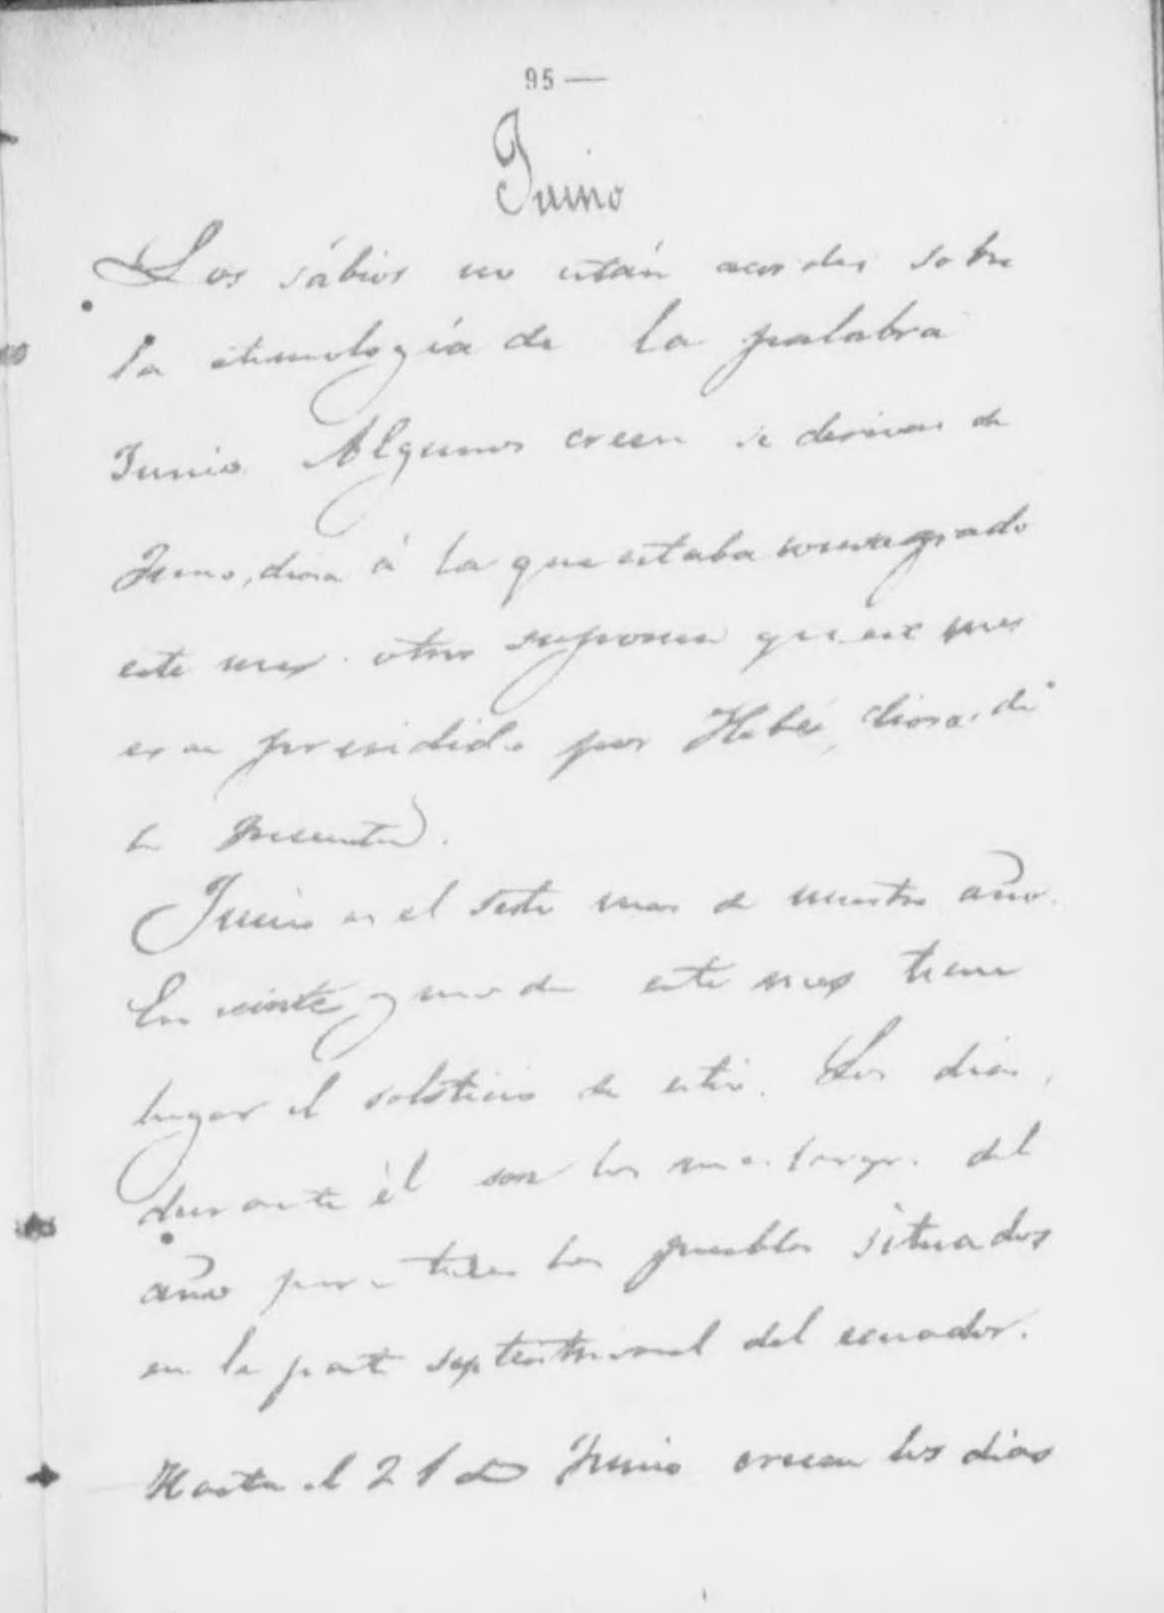 95 —
Junio
Los sábios no están acordes sobre
la etimología de la palabra
Junio. Algunos creen se deriva de
Juno, diosa á la que estaba consagrado
este mes. otros suponen que este mes
era presidido por Hebé, diosa de
la Juventud.
Junio es el sesto mes de nuestro año.
Los veinte y uno de este mes tiene
lugar el solsticio de estio. Los dias,
durante él son los mas largos del
año para todos los pueblos situados
en la parte septentrional del ecuador.
Hasta el 21 de Junio crecen los dias